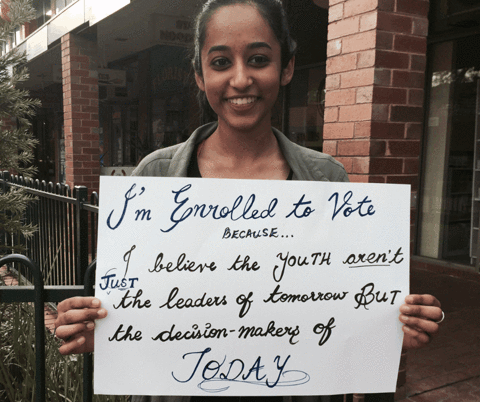 I'm Enrolled to Vote
BECAUSE...
I believe the YOUTH aren't
JUST the leaders of tomorrow BUT
the decision-makers of
TODAY